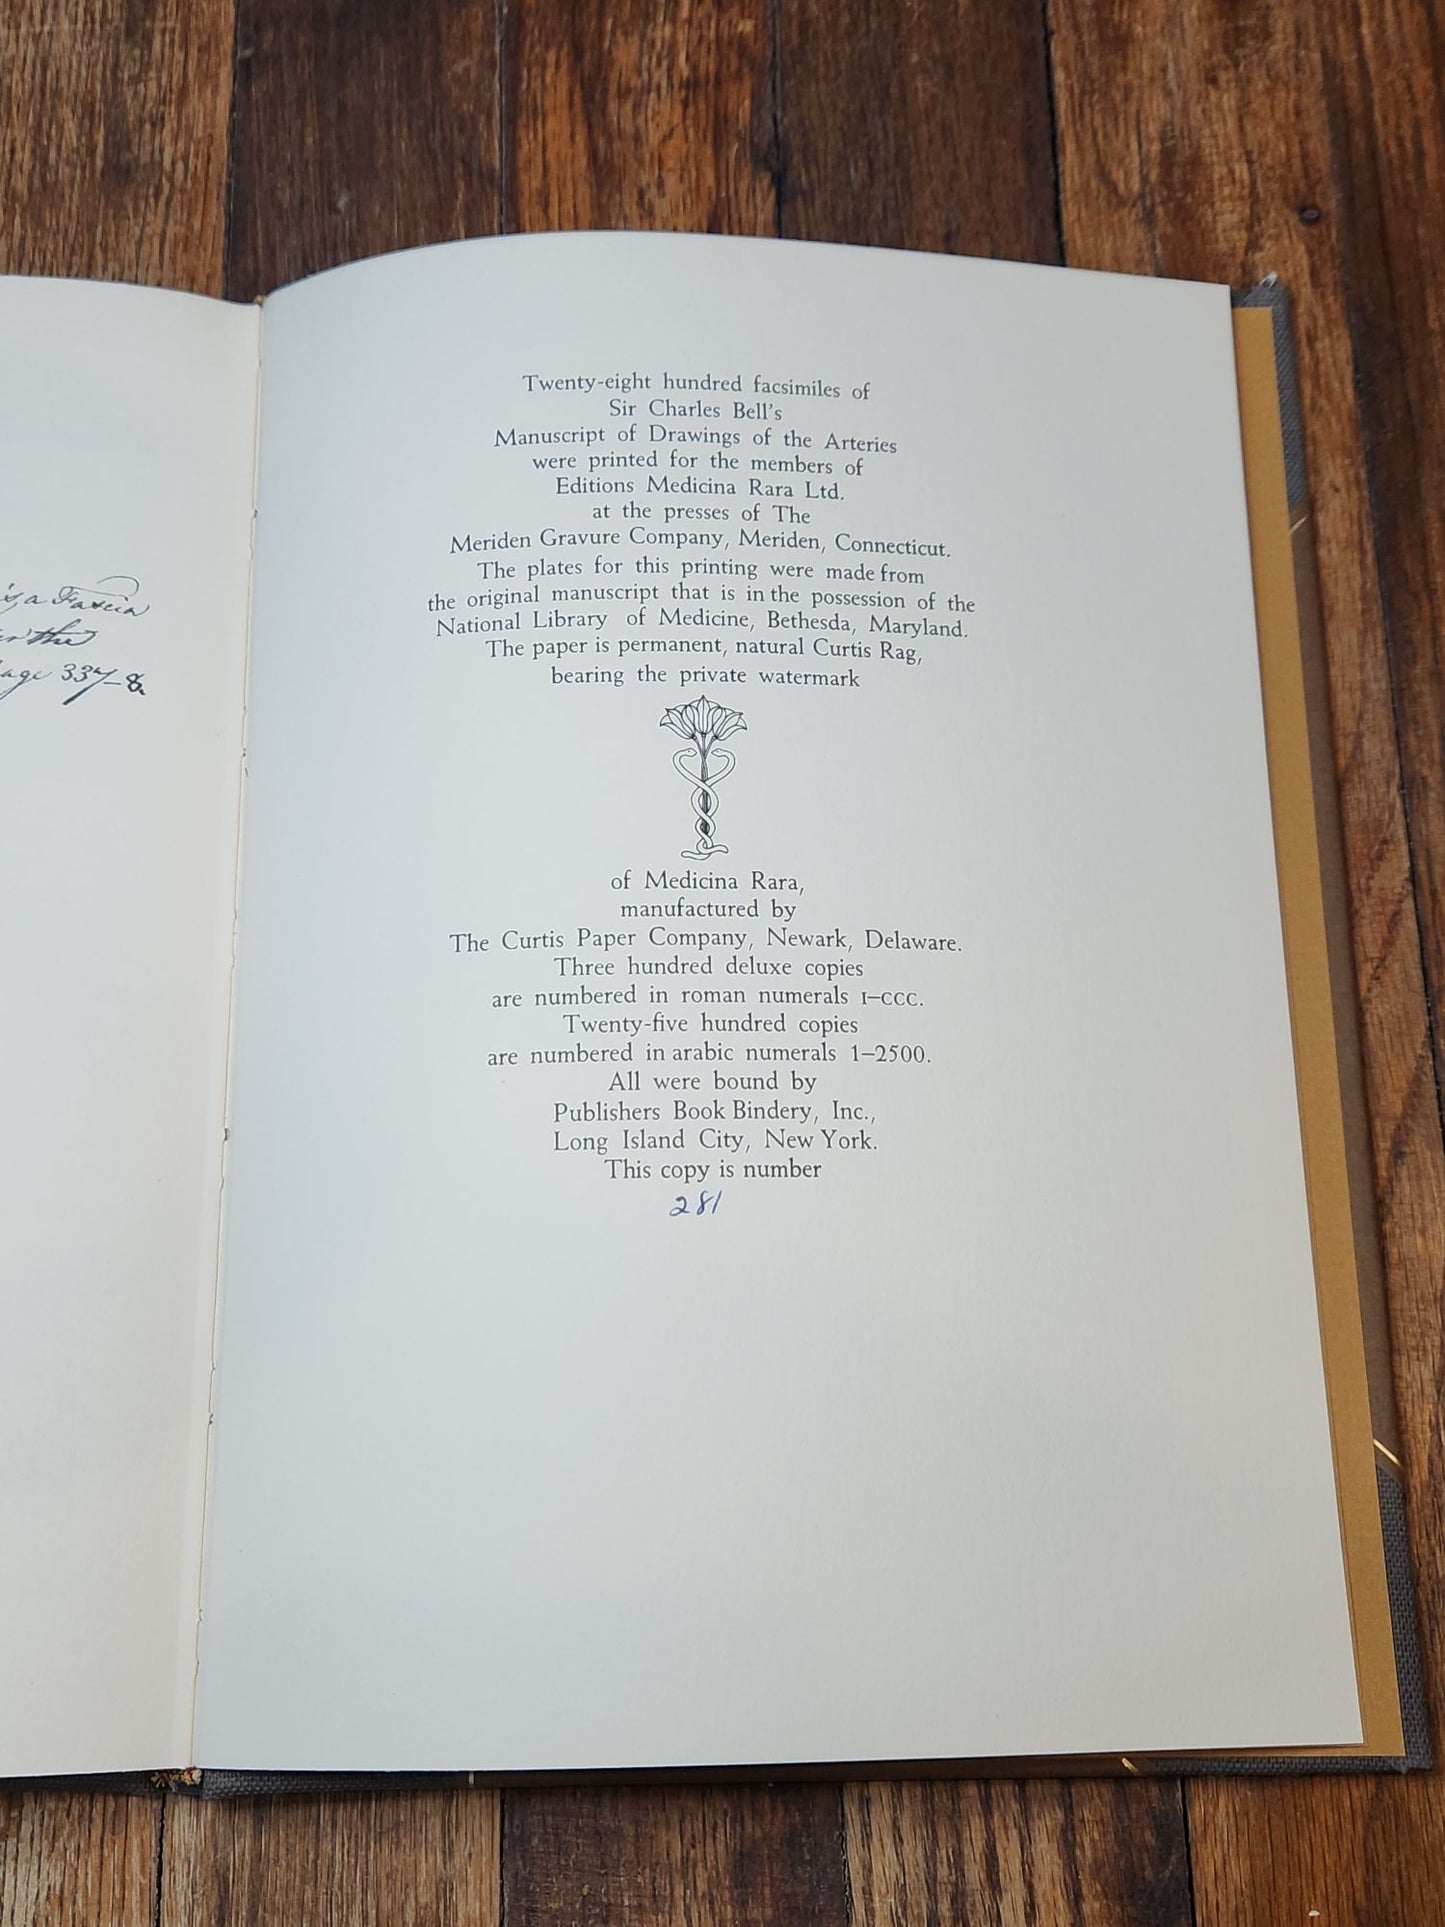 a Fascia
in the
page 337–8.
Twenty-eight hundred facsimiles of
Sir Charles Bell's
Manuscript of Drawings of the Arteries
were printed for the members of
Editions Medicina Rara Ltd.
at the presses of The
Meriden Gravure Company, Meriden, Connecticut.
The plates for this printing were made from
the original manuscript that is in the possession of the
National Library of Medicine, Bethesda, Maryland.
The paper is permanent, natural Curtis Rag,
bearing the private watermark
of Medicina Rara,
manufactured by
The Curtis Paper Company, Newark, Delaware.
Three hundred deluxe copies
are numbered in roman numerals I–CCC.
Twenty-five hundred copies
are numbered in arabic numerals 1–2500.
All were bound by
Publishers Book Bindery, Inc.,
Long Island City, New York.
This copy is number
281